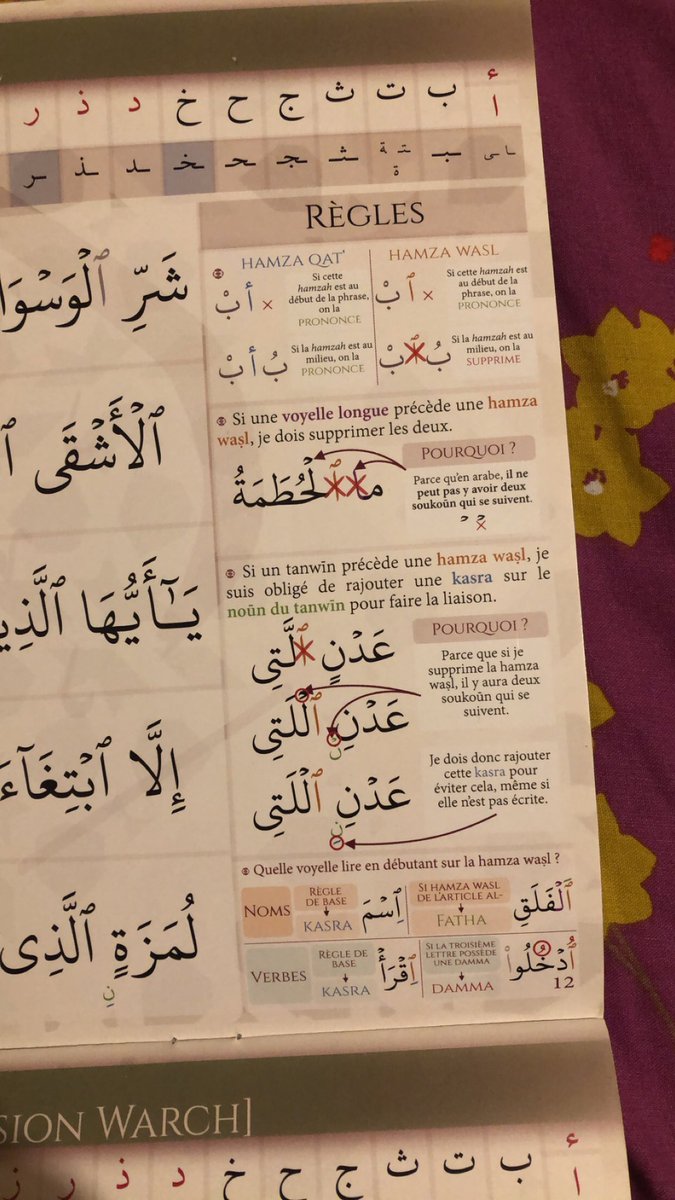 ء ا ب ت ث ج ح خ د ذ ر
ـا ـى ـبـ ـتـ ـة ة ـثـ ـجـ ـحـ ـخـ ـد ـذ ـر
RÈGLES
HAMZA QAT'
Si cette hamzah est au début de la phrase, on la PRONONCE
× أبْ
Si la hamzah est au milieu, on la PRONONCE
بُ أبْ
HAMZA WASL
Si cette hamzah est au début de la phrase, on la PRONONCE
× ٱبْ
Si la hamzah est au milieu, on la SUPPRIME
بُ ٱبْ
Si une voyelle longue précède une hamza
waṣl, je dois supprimer les deux.
مَا ٱلْحُطَمَةُ
POURQUOI ?
Parce qu'en arabe, il ne
peut pas y avoir deux
soukoūn qui se suivent.
Si un tanwīn précède une hamza waṣl, je
suis obligé de rajouter une kasra sur le
noūn du tanwīn pour faire la liaison.
عَدْنٍ ٱلَّتِى
POURQUOI ?
Parce que si je
supprime la hamza
waṣl, il y aura deux
soukoūn qui se
suivent.
عَدْنِ ٱلْلَتِى
نْ
Je dois donc rajouter
cette kasra pour
éviter cela, même si
elle n'est pas écrite.
عَدْنِ ٱلْلَتِى
نِ
Quelle voyelle lire en débutant sur la hamza waṣl ?
NOMS
RÈGLE DE BASE
KASRA
اِسْمَ
SI HAMZA WASL DE L'ARTICLE AL-
FATHA
اَلْفَلَقِ
VERBES
RÈGLE DE BASE
KASRA
اِقْرَأْ
SI LA TROISIÈME LETTRE POSSÈDE UNE DAMMA
DAMMA
اُدْخُلُواْ
12
شَرِّ ٱلْوَسْوَا
ٱلْأَشْقَى
يَـٰٓأَيُّهَا ٱلَّذِيـ
إِلَّا ٱبْتِغَآءَ
لُمَزَةٍ ٱلَّذِى
نِ
SION WARCH]
ء ا ب ت ث ج ح خ د ذ ر ز